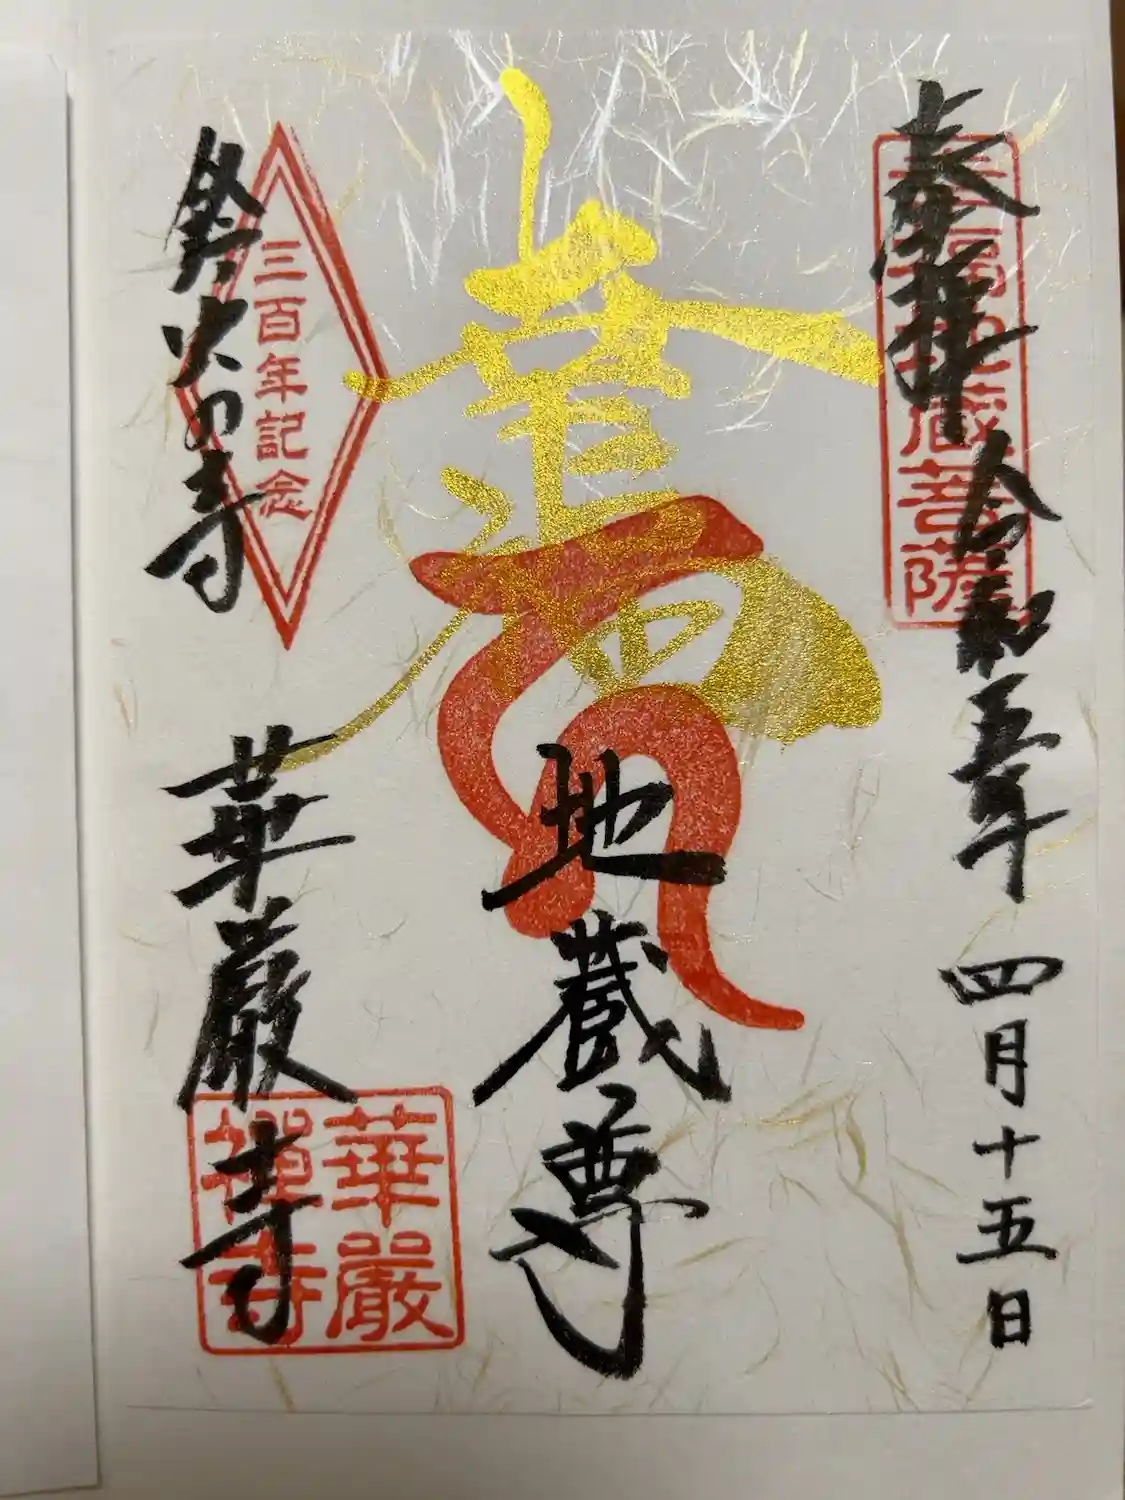 奉拝
令和五年
四月十五日
幸福地蔵菩薩
幸福
地蔵尊
三百年記念
鈴虫の寺
華厳寺
華嚴
禅寺